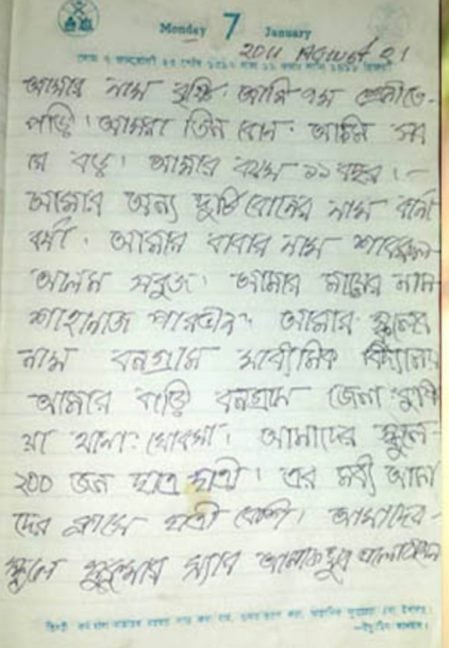 Monday 7 January
2011 August 21
আমার নাম বৃষ্টি। আমি ৭ম শ্রেনীতে
পড়ি। আমরা তিন বোন। আমি সব
য়ে বড়। আমার বয়স ১১ বছর।
আমার অন্য দুটি বোনের নাম বর্না
বর্ষা। আমার বাবার নাম
আলম সবুজ। আমার মায়ের নাম
শাহানাজ পারভীন। আমার স্কুলের
নাম বনগ্রাম মাধ্যমিক বিদ্যালয়
আমার বাড়ি বনগ্রাম জেলা: কুষ্টি
য়া থানা: খোকসা। আমাদের স্কুলে
২০০ জন ছাত্র ছাত্রী। এর মধ্যে আমা
দের ক্লাসে ছাত্রী বেশি। আমাদের
স্কুলে স্যার আমাকে খুব